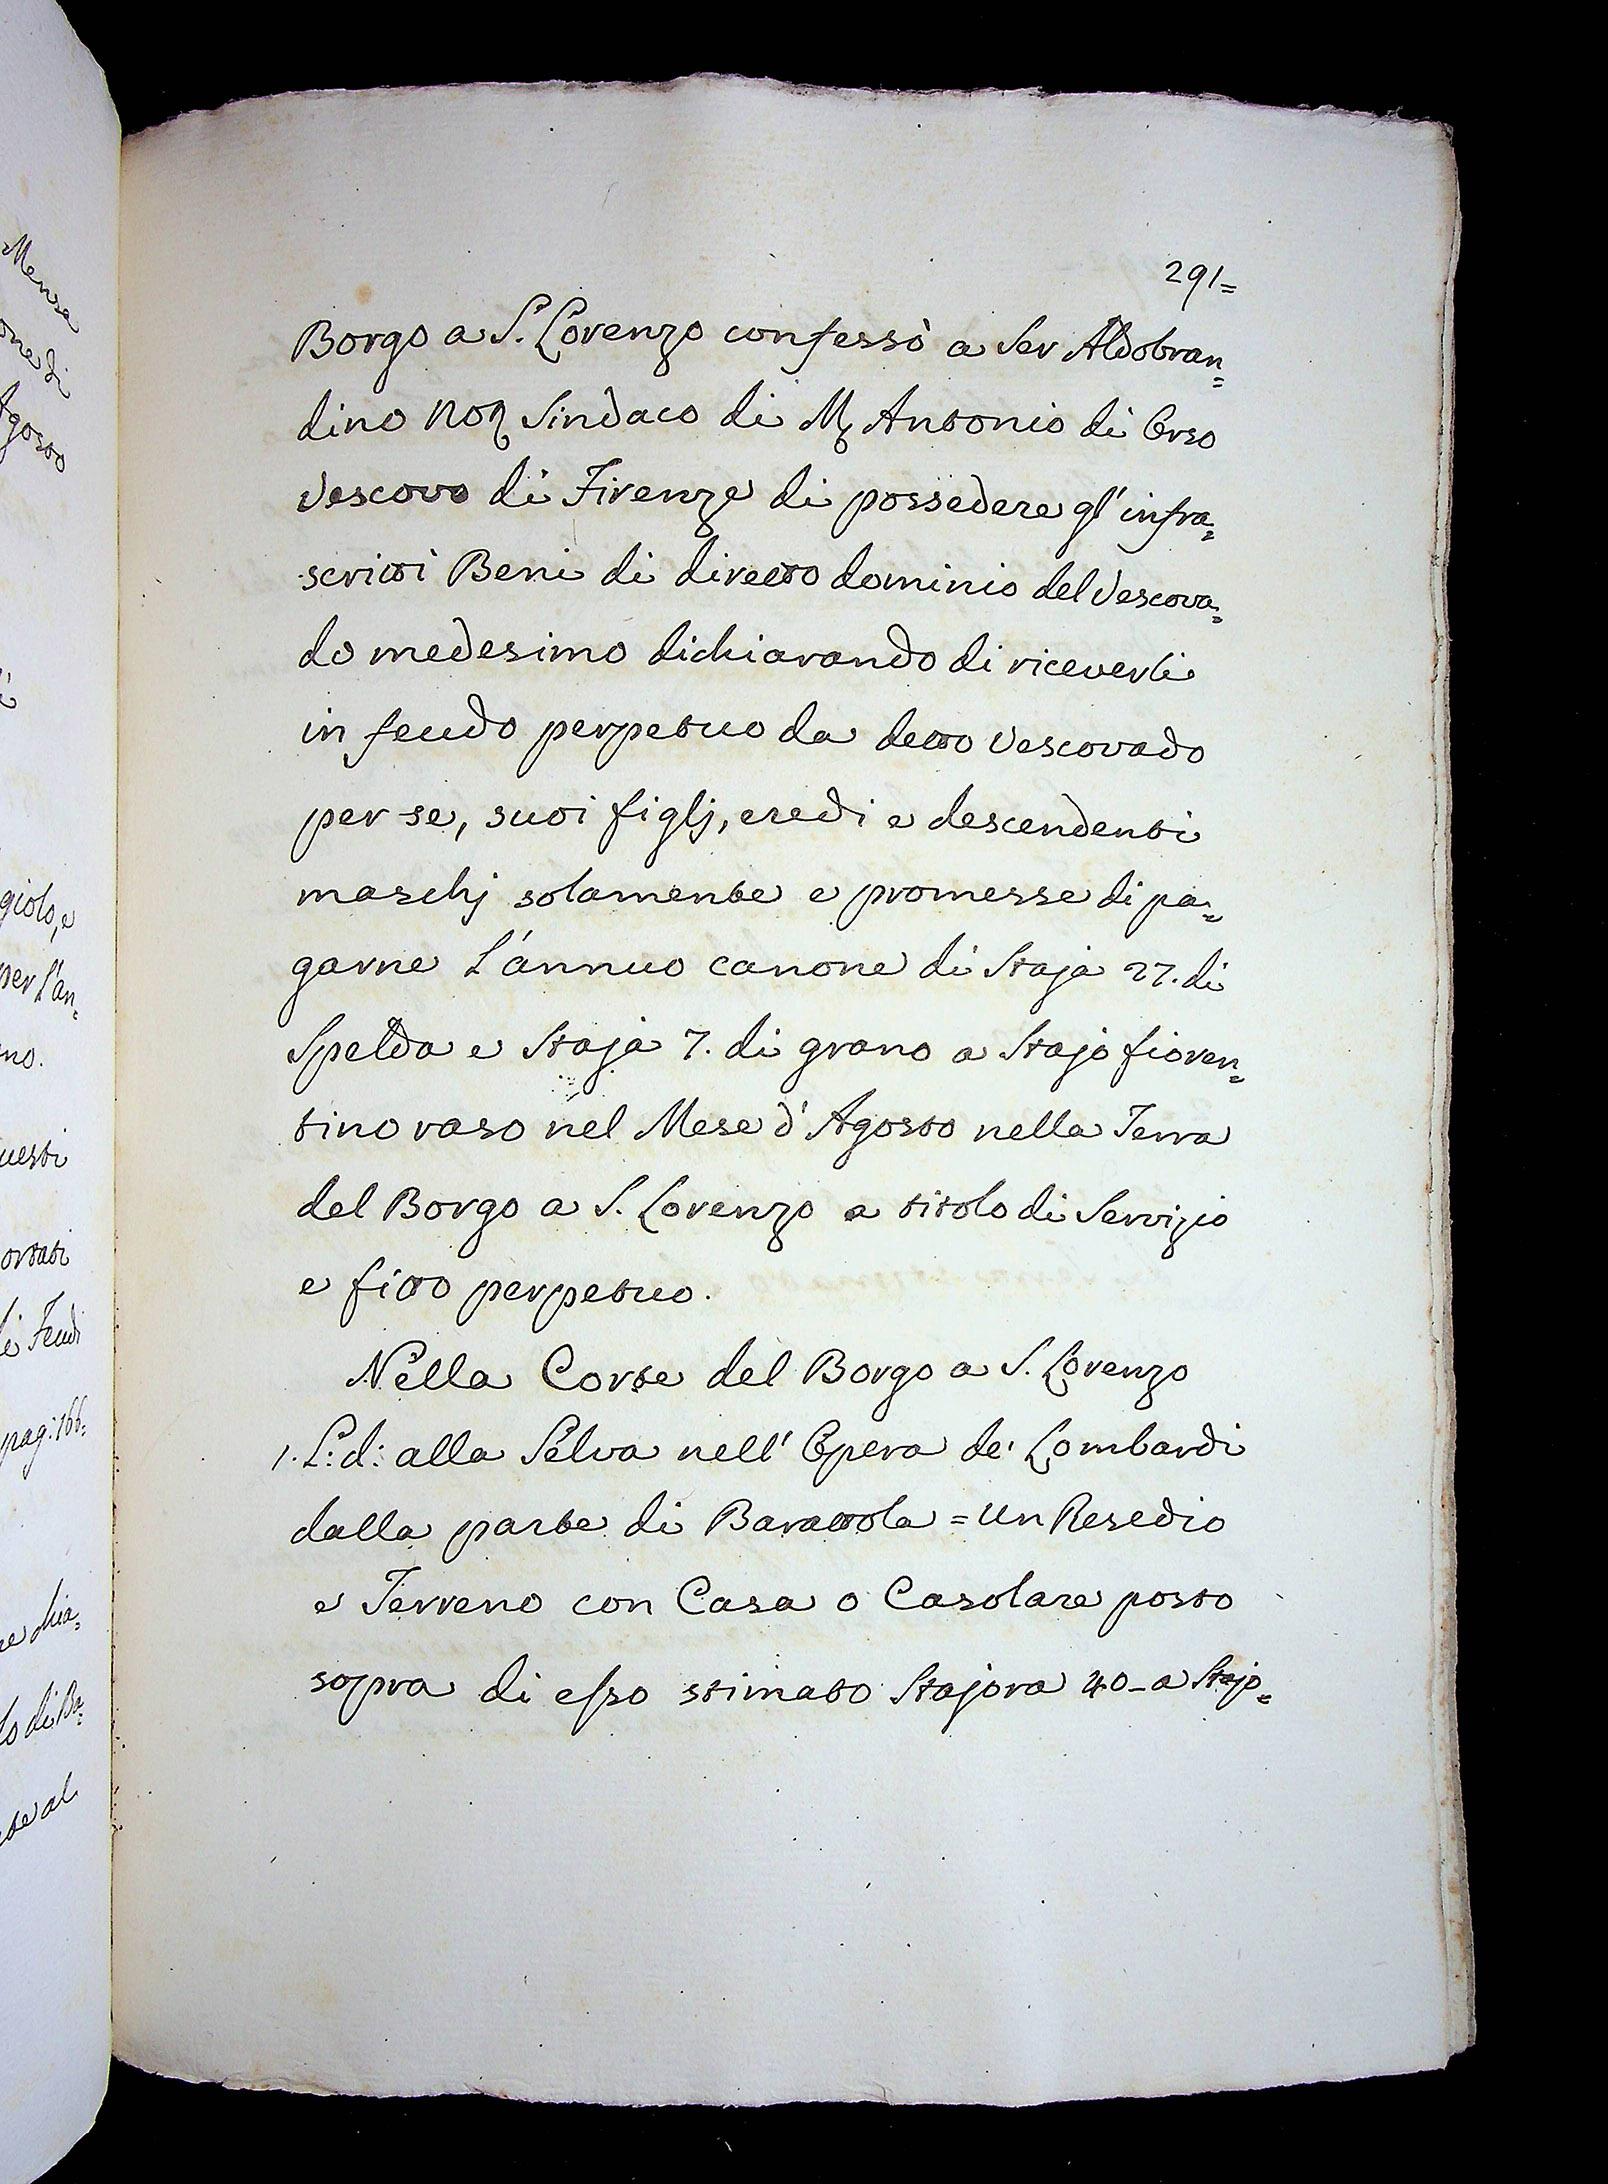 Mensa
one di
Agosto
giolo, e
per l'an=
no.
uesti
ortati
di Feudi
pag: 166=
re chia=
lo di Ba=
te al
291=
Borgo a S. Lorenzo confessò a Ser Aldobran=
dino Not Sindaco di M Antonio di Orso
Vescovo di Firenze di possedere gl'infra=
scritti Beni di diretto dominio del Vescova=
do medesimo dichiarando di riceverli
in feudo perpetuo da detto Vescovado
per se, suoi figlj, eredi e descendenti
maschj solamente e promesse di pa=
garne l'annuo canone di Staja 27. di
Spelda e Staja 7. di grano a Stajo fioren=
tino raso nel Mese d'Agosto nella Terra
del Borgo a S. Lorenzo a titolo di Servizio
e fitto perpetuo.
Nella Corte del Borgo a S. Lorenzo
1. L: d: alla Selva nell' Opera de' Lombardi
dalla parte di Barattola = Un Resedio
e Terreno con Casa o Casolare posto
sopra di esso stimato Stajora 40 - a Stajo=